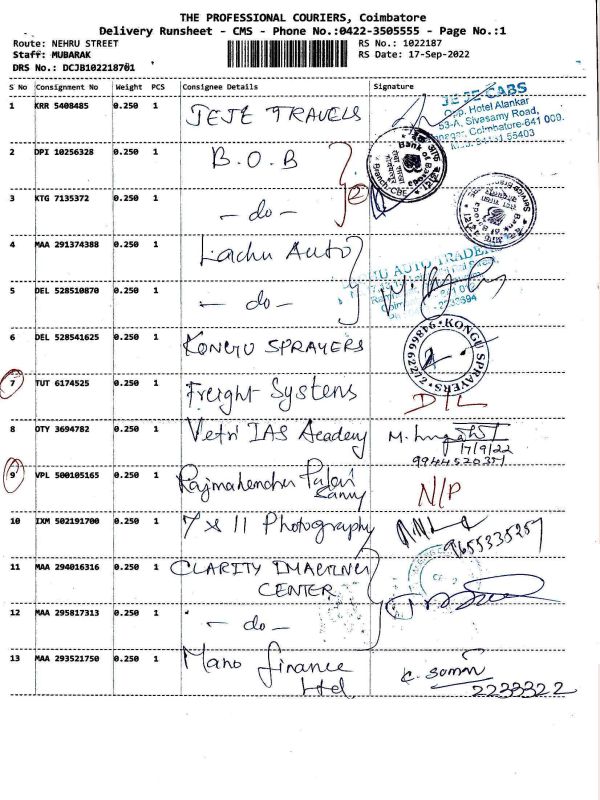 THE PROFESSIONAL COURIERS, Coimbatore
Delivery Runsheet - CMS - Phone No.:0422-3505555 - Page No.:1
Route: NEHRU STREET RS No.: 1022187
Staff: MUBARAK RS Date: 17-Sep-2022
DRS No.: DCJB102218701
S No Consignment No Weight PCS Consignee Details Signature
1 KRR 5408485 0.250 1 JEJE TRAVELS
JEJE CABS
Opp. Hotel Alankar
53-A, Sivasamy Road,
Coimbatore-641 009.
2 DPI 10256328 0.250 1 B.O.B
Bank of Baroda
2
3 KTG 7135372 0.250 1 - do -
4 MAA 291374388 0.250 1 Lachu Auto
AUTO TRADERS
5 DEL 528510870 0.250 1 - do -
6 DEL 528541625 0.250 1 KONGU SPRAYERS
KONGU SPRAYERS
7 TUT 6174525 0.250 1 Freight Systems D/L
8 OTY 3694782 0.250 1 Vetri IAS Academy
17/9/22
9 VPL 500105165 0.250 1 N/P
10 IXM 502191700 0.250 1 7 x 11 Photography
9655335257
11 MAA 294016316 0.250 1 CLARITY IMAGING
CENTER
12 MAA 295817313 0.250 1 - do -
13 MAA 293521750 0.250 1 Mano finance
Ltd
2233322